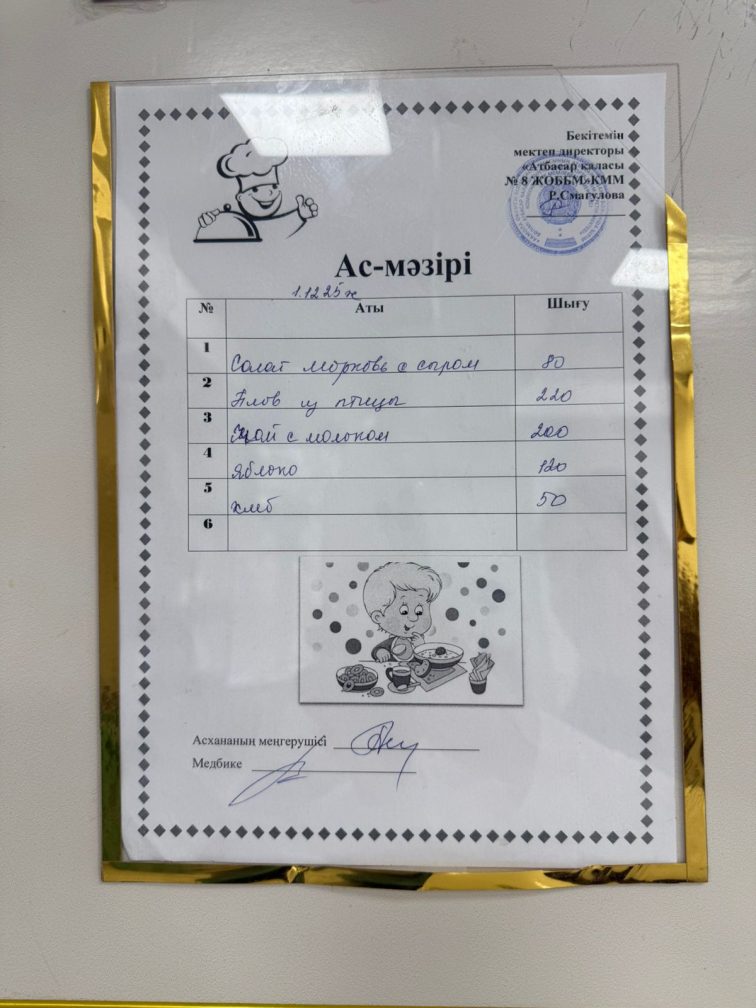 Бекітемін
мектеп директоры
«Атбасар қаласы
№ 8 ЖОББМ»КММ
Р.Смагулова
Ас-мәзірі
1.12 25ж
№ Аты Шығу
1 Солат морковь с сыром 80
2 Плов из птицы 220
3 Чай с молоком 200
4 Яблоко 120
5 хлеб 50
6
Асхананың меңгерушісі
Медбике